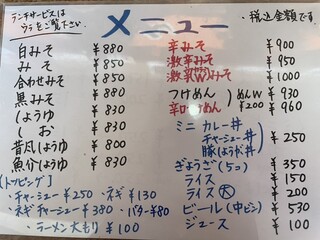 ランチサービスは
ウラをご覧下さい
メニュー
・税込金額です。
白みそ ¥880
みそ ¥850
合わせみそ ¥880
黒みそ ¥880
しょうゆ ¥830
しお ¥830
昔風しょうゆ ¥830
魚介しょうゆ ¥830
【トッピング】
・チャーシュー¥250 ・ネギ¥130
・ネギチャーシュー¥380 ・バター¥80
・ラーメン大もり ¥100
辛みそ ¥900
激辛みそ ¥950
激辛みそ ¥1000
つけめん ¥930
辛口つけめん ¥960
めんW ¥200
ミニ カレー丼
チャーシュー丼
豚しょうが丼
¥250
ぎょうざ(5コ) ¥350
ライス ¥150
ライス(大) ¥200
ビール(中ビン) ¥530
ジュース ¥100